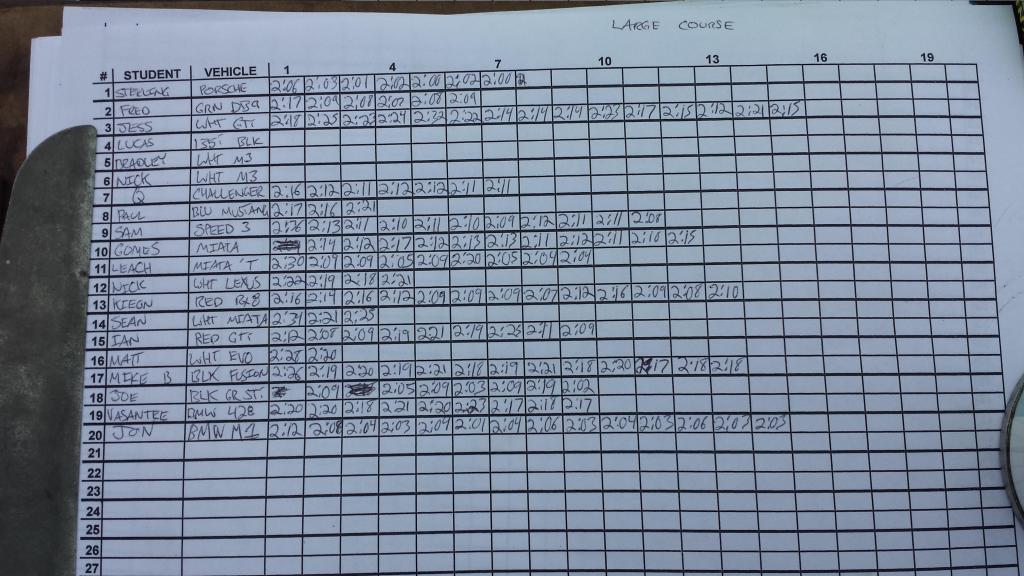 LARGE COURSE
# STUDENT VEHICLE 1 4 7 10 13 16 19
1 PORSCHE 2:06 2:03 2:01 2:02 2:00 2:02 2:00
2 FRED GRN 2:17 2:09 2:08 2:07 2:08 2:09
3 JESS WHT GTI 2:18 2:25 2:23 2:24 2:32 2:22 2:14 2:14 2:14 2:23 2:17 2:15 2:12 2:21 2:15
4 LUCAS 135i BLK
5 BRADLEY WHT M3
6 NICK WHT M3
7 Q CHALLENGER 2:16 2:12 2:11 2:12 2:12 2:11 2:11
8 PAUL BLU MUSTANG 2:17 2:16 2:21
9 SAM SPEED 3 2:26 2:13 2:11 2:10 2:11 2:10 2:09 2:12 2:11 2:11 2:08
10 GOMES MIATA 2:14 2:12 2:17 2:12 2:13 2:13 2:11 2:12 2:11 2:10 2:15
11 LEACH MIATA 'T 2:20 2:09 2:09 2:05 2:09 2:20 2:05 2:04 2:04
12 NICK WHT LEXUS 2:22 2:19 2:18 2:21
13 KIEON RED RX8 2:16 2:14 2:16 2:12 2:09 2:09 2:09 2:07 2:12 2:16 2:09 2:08 2:10
14 SEAN WHT MIATA 2:31 2:21 2:25
15 IAN RED GTI 2:12 2:08 2:09 2:19 221 2:19 2:25 2:11 2:09
16 MATT WHT EVO 2:28 2:20
17 MIKE B BLK FUSION 2:26 2:19 2:20 2:19 2:21 2:18 2:19 2:21 2:18 2:20 17 2:18 2:18
18 JOE BLK GR ST. 2:09 2:05 2:09 2:03 2:09 2:19 2:02
19 VASANTEE BMW 428 2:20 2:20 2:18 2:21 2:20 2:23 2:17 2:18 2:17
20 JON BMW M1 2:12 2:08 2:04 2:03 2:09 2:01 2:04 2:06 2:03 2:04 2:03 2:06 2:03 2:03
21
22
23
24
25
26
27